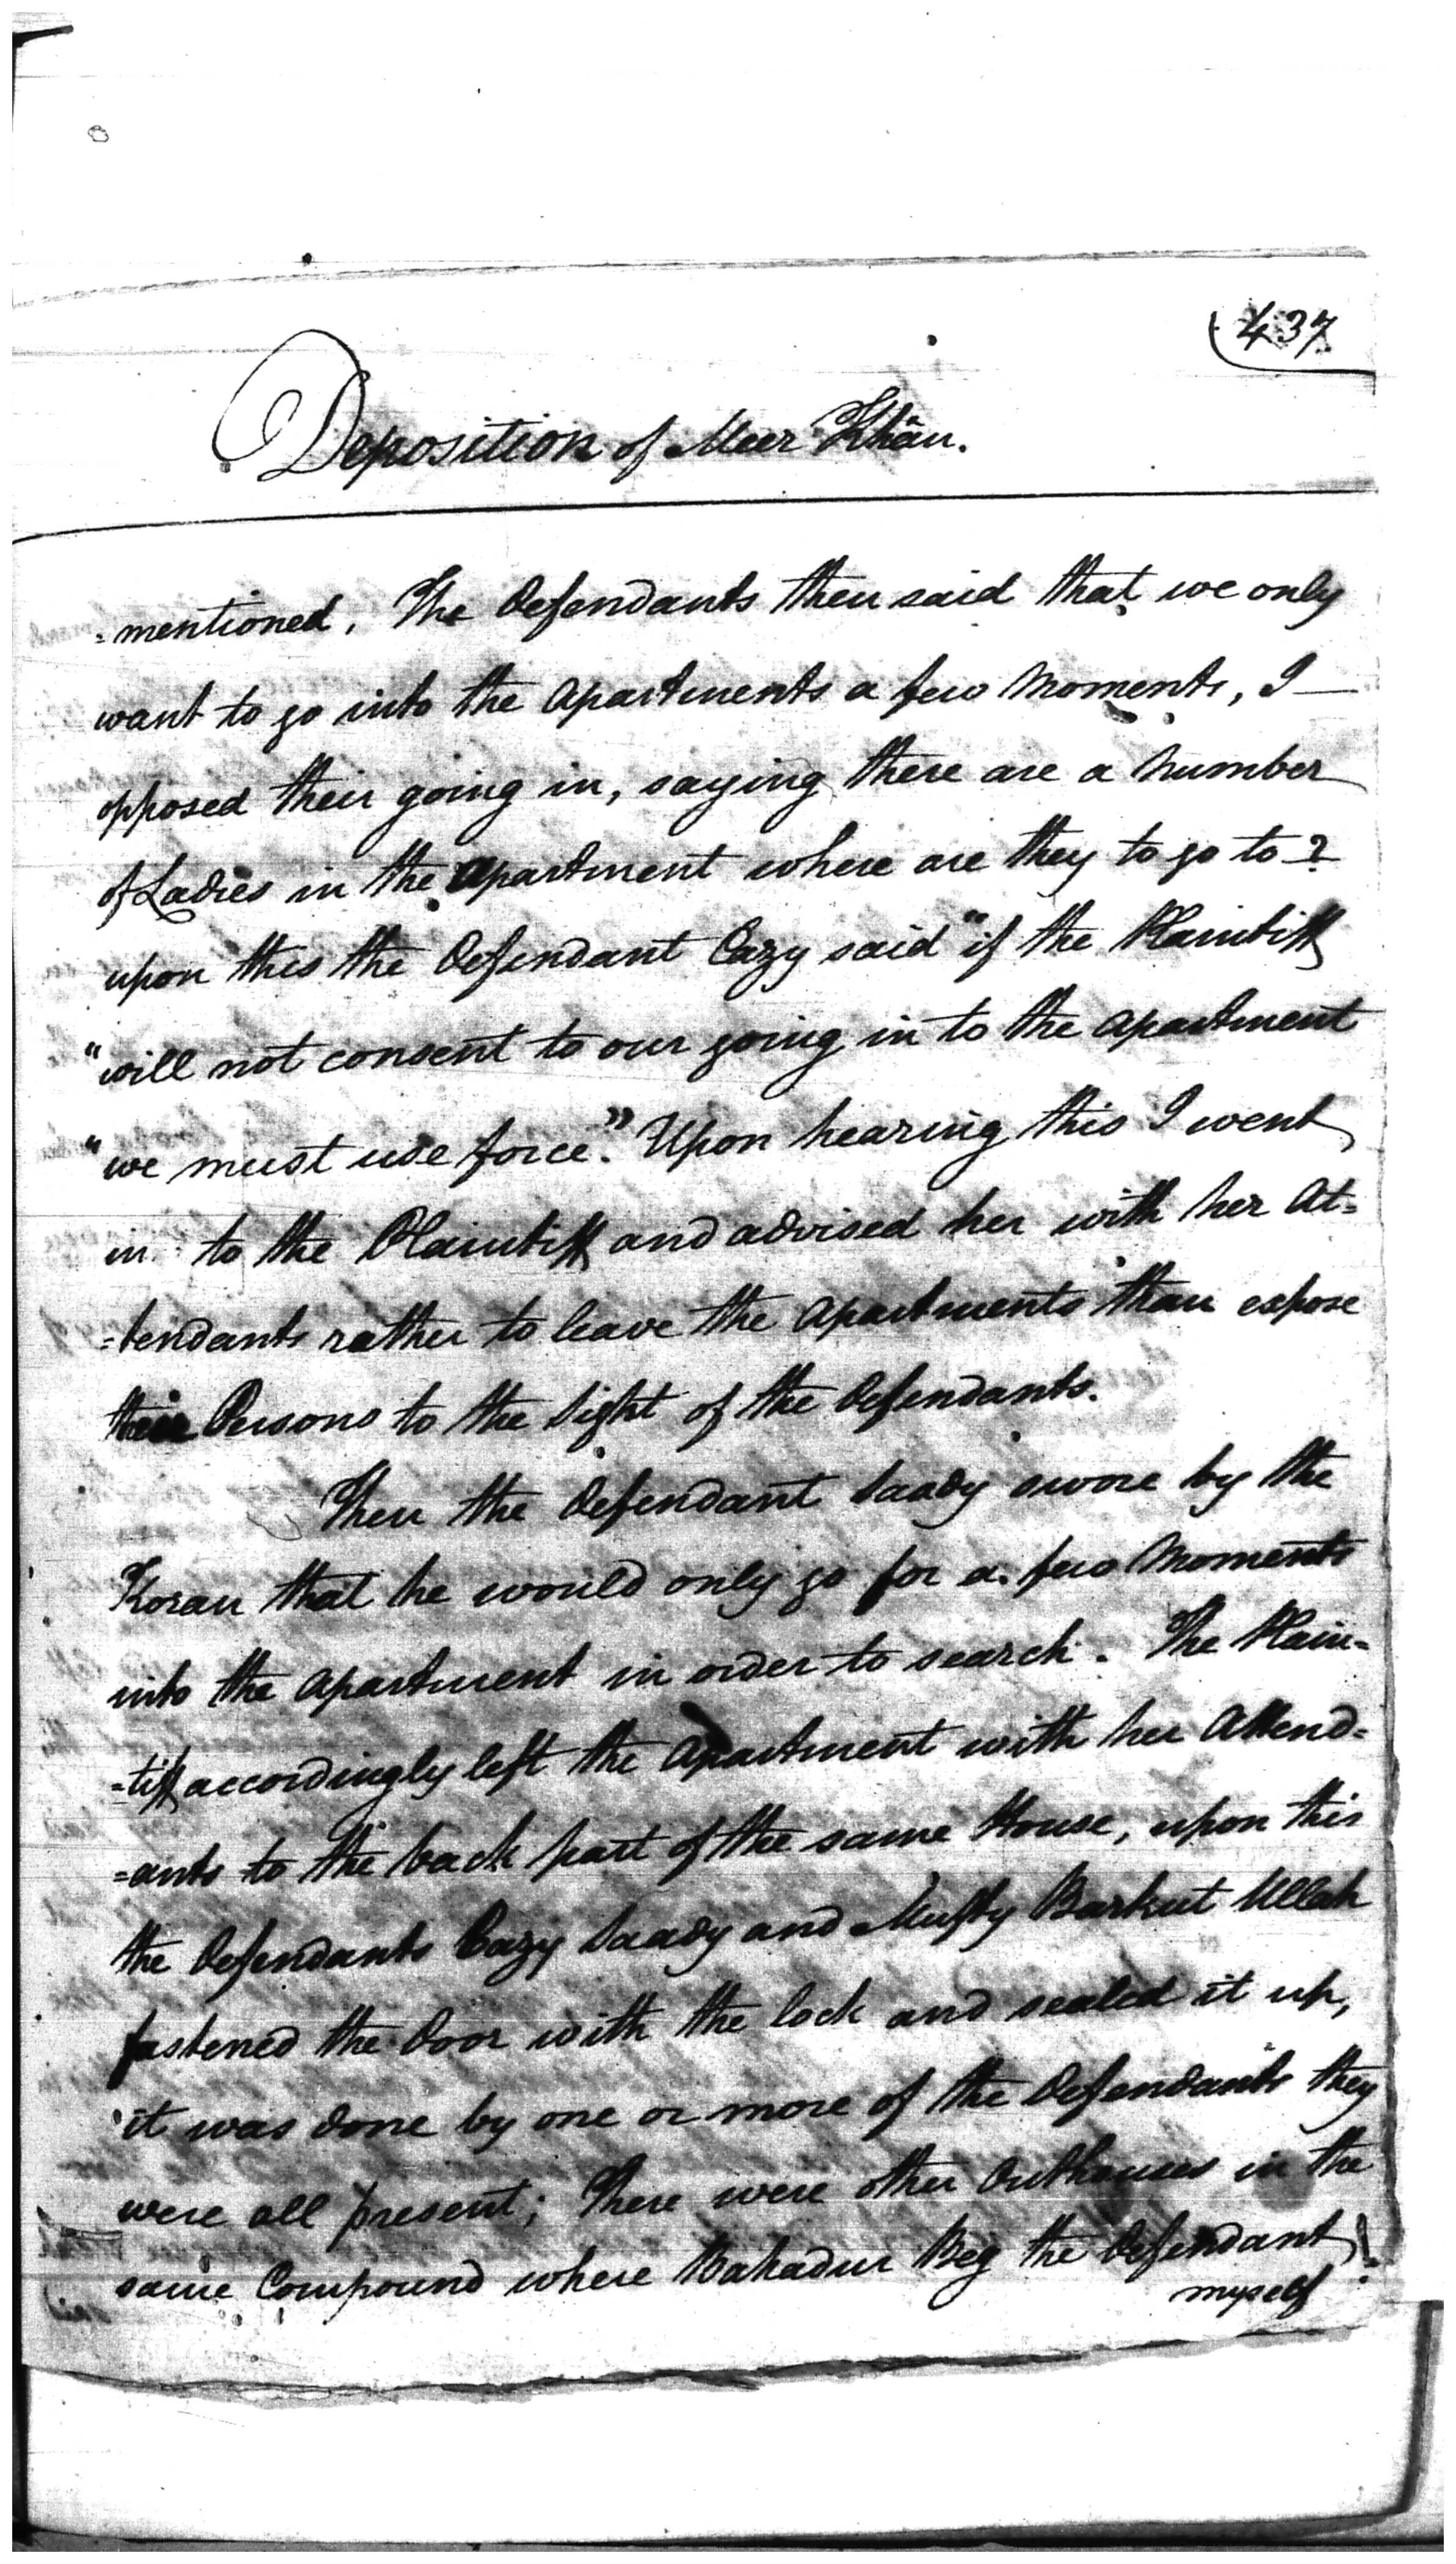 437
Deposition of Meer Khân.
=mentioned. The Defendants then said that we only
want to go into the Apartments a few Moments, I —
opposed their going in, saying there are a Number
of Ladies in the Apartment where are they to go to?
upon this the Defendant Cazy said "if the Plaintiff
"will not consent to our going in to the Apartment
"we must use force." Upon hearing this I went
in to the Plaintiff and advised her with her At=
=tendants rather to leave the Apartments than expose
their Persons to the Sight of the Defendants.
Then the Defendant Saady swore by the
Koran that he would only go for a few Moments
into the Apartment in order to search. The Plain=
=tiff accordingly left the Apartment with her Attend=
=ants to the back part of the same House, upon this
the Defendants Cazy Saady and Mufty Barkut Ullah
fastened the Door with the lock and sealed it up,
it was done by one or more of the Defendants they
were all present; There were other Outhouses in the
same Compound where Bahadur Beg the Defendant
myself